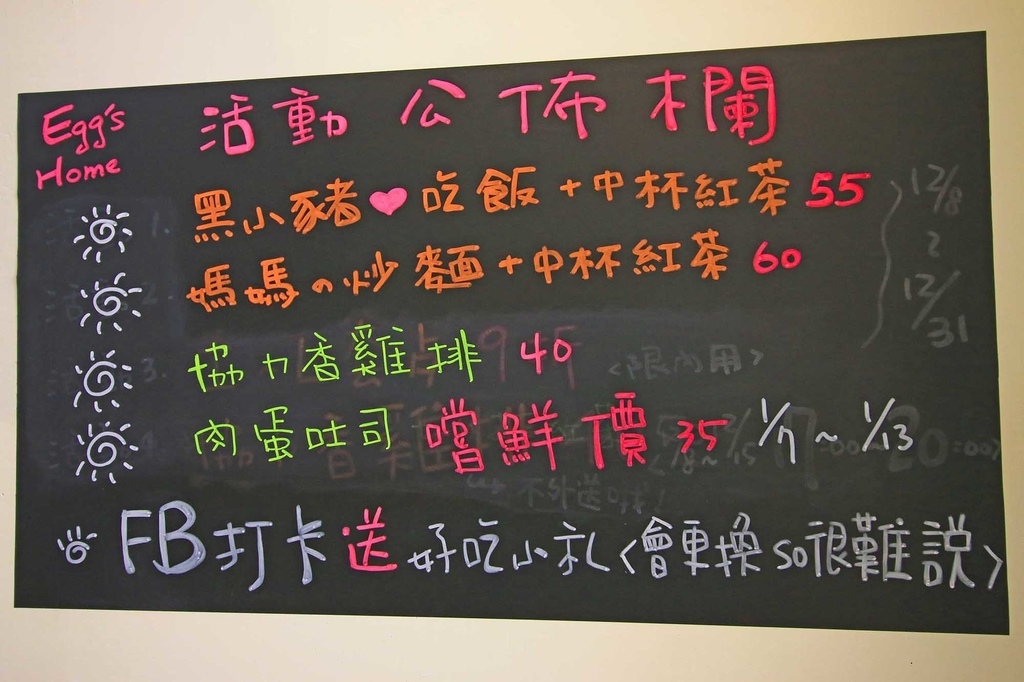 Egg's Home
活動公佈欄
黑小豬♥吃飯+中杯紅茶 55
媽媽の炒麵+中杯紅茶 60
協力香雞排 40
<限內用>
肉蛋吐司 嚐鮮價 35 1/7~1/13
FB打卡送好吃小礼<會更換so很難說>
12/8
~
12/31